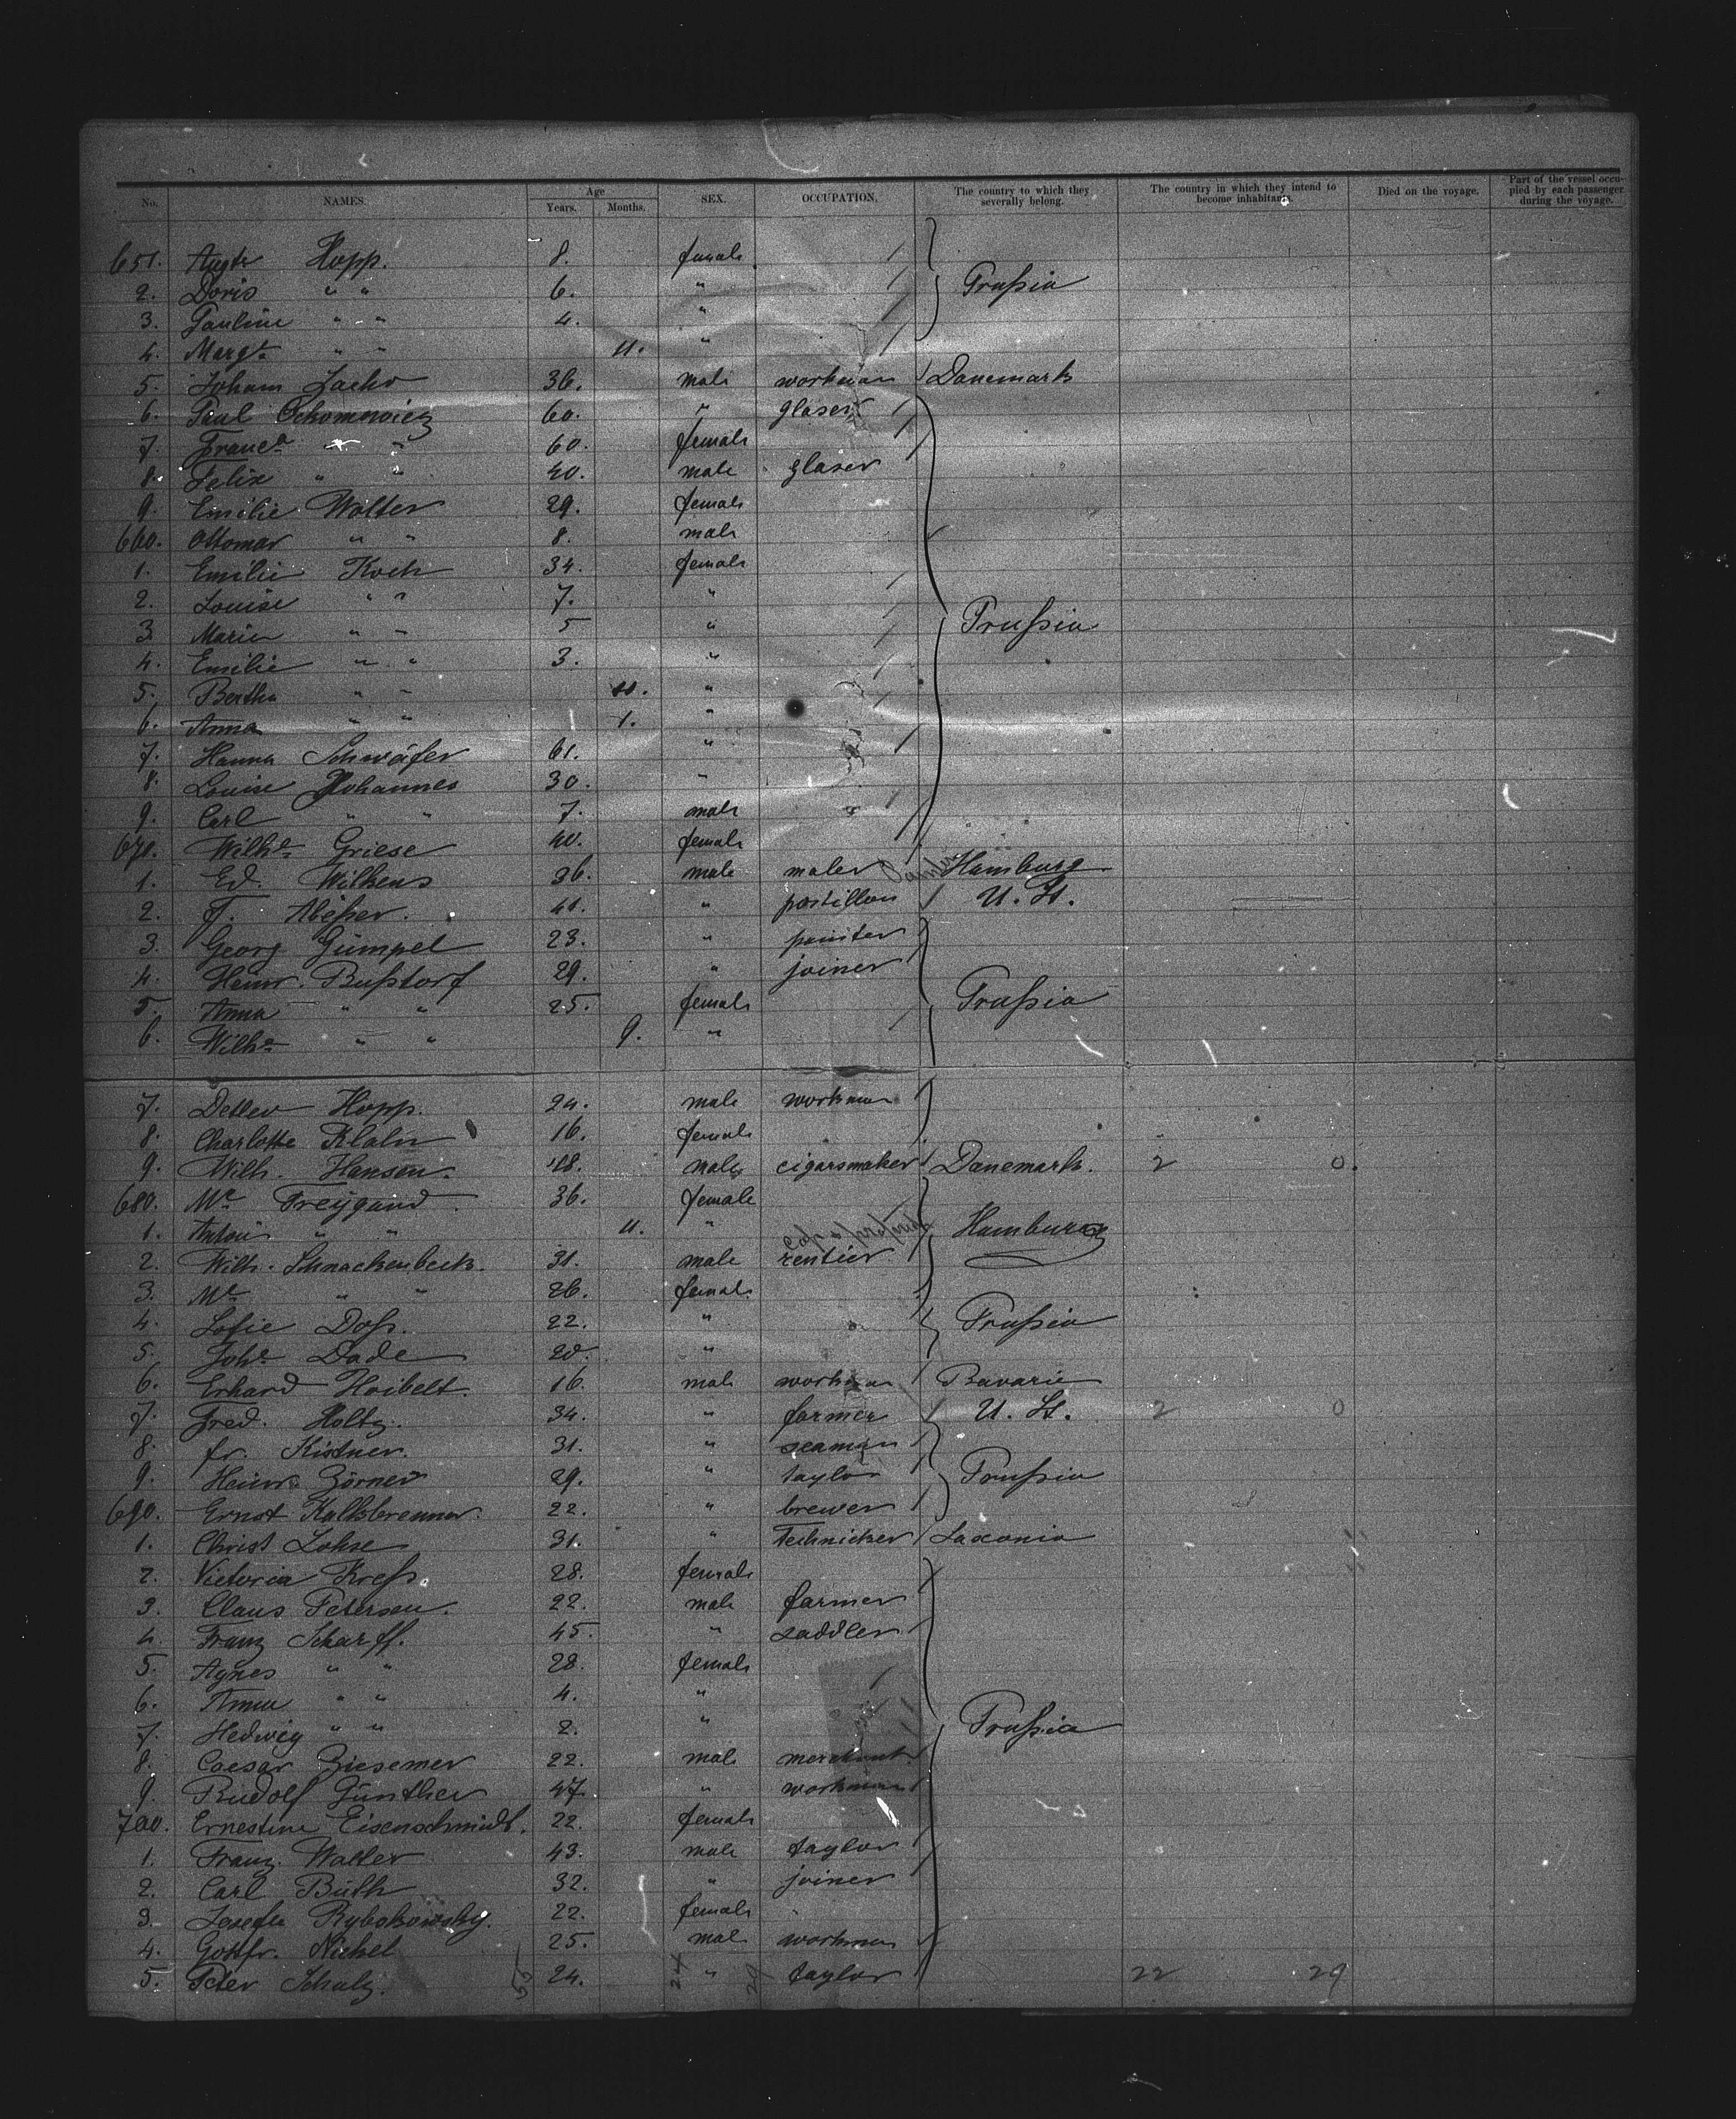 No. NAMES. Age Years. Months. SEX. OCCUPATION. The country to which they severally belong. The country in which they intend to become inhabitants. Died on the voyage. Part of the vessel occupied by each passenger during the voyage.
651. Hopp. 8. female
2. Doris " " 6. " Prußia
3. Pauline " " 4. "
4. Marg. " " 11. "
5. Johann 36. male workman Danemark
6. Paul 60. " glaser
7. Franc. " " 60. female
8. Felix " " 40. male glaser
9. Emilie Walter 29. female
660. Ottomar " " 8. male
1. Emilie Koch 34. female
2. Louise " " 7. "
3. Marie " " 5 " Prußia
4. Emilie " " 3. "
5. Bertha " " "
6. Anna " " 1. "
7. Hanna Schwäfer 61. "
8. Louise Johannes 30. "
9. Carl " " 7. male
670. Wilhe. Griese 40. female
1. Ed. Wilkens 36. male maler Hamburg
2. F. 41. " postillon U. St.
3. Georg Gümpel 23. " painter
4. Heinr. Bußtorf 29. " joiner
5. Anna " " 25. female Prußia
6. Wilhe. " " 9. "
7. Detlev Hopp. 24. male workman
8. Charlotte Klahn 16. female
9. Wilh. Hansen. 48. male cigarsmaker Danemark. 2 0.
680. Me. Freygand 36. female
1. " " 11. " Hamburg
2. Wilh. Schnackenbeck. 31. male rentier
3. Me. " " 26. female
4. Sofie Doß. 22. " Prußia
5. Johe. Dade 20. "
6. Erhard Hoibelt. 16. male workman Bavaria
7. Fred. Holtz. 34. " farmer U. St. 2 0
8. fr. Kistner. 31. " seaman
9. Heinr. Zörner 29. " taylor Prußia
690. Ernst Kalkbrenner. 22. " brewer
1. Christ Lohse 31. " Technicker Saxonia
2. Victoria Kreß. 28. female
3. Claus Petersen. 22. male farmer
4. Franz Scharff. 45. " saddler
5. Agnes " " 28. female
6. Anna " " 4. "
7. Hedwig " " 2. " Prußia
8. Caesar Ziesemer 22. male merchant
9. Rudolf Günther 47. " workman
700. Ernestine Eisenschmidt. 22. female
1. Franz. Walter 43. male taylor
2. Carl Büth 32. " joiner
3. Josefa Rybakowsky. 22. female
4. Gottfr. Nickel 25. male workman
5. Peter Schulz. 55 24. 24 " 29 taylor 22 29